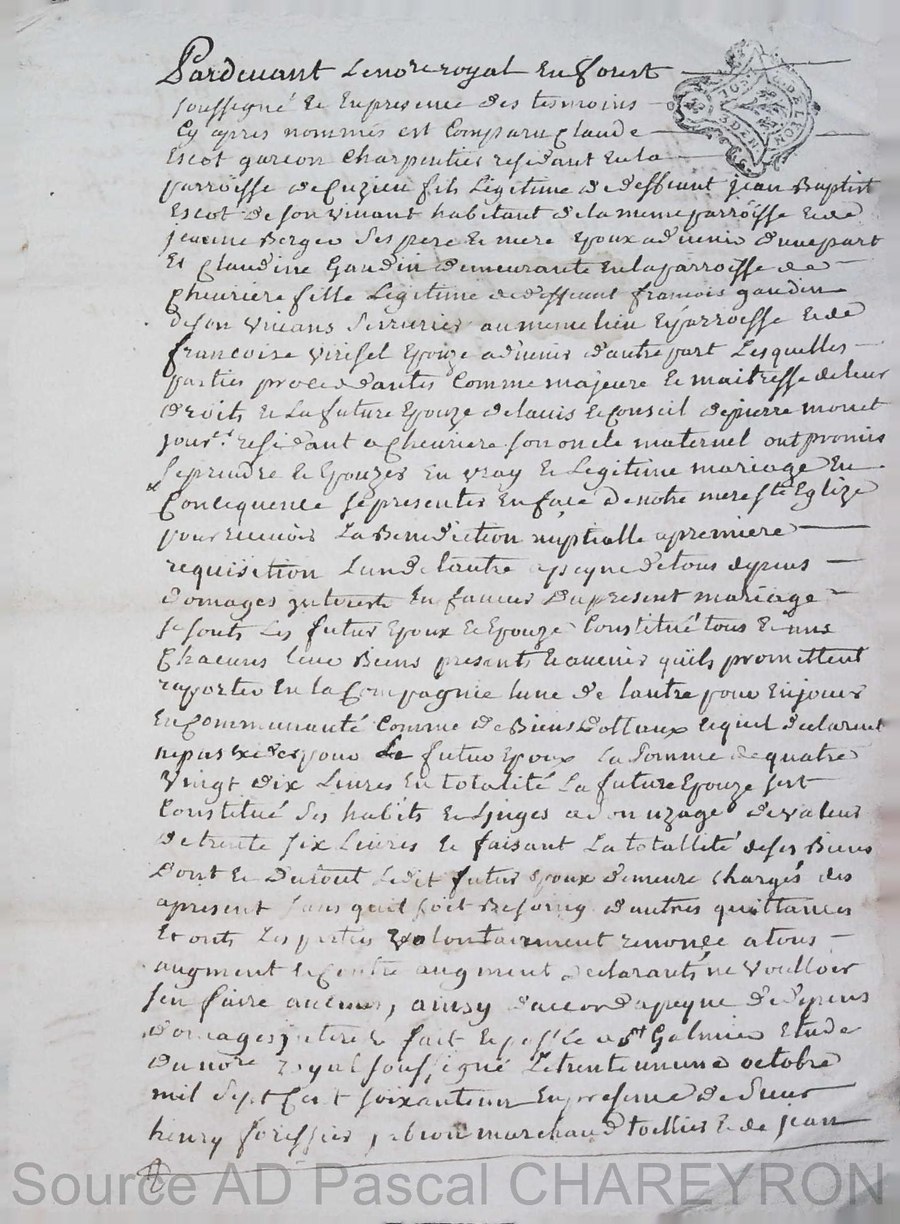 Pardevant Le no.re royal En forest
soussigné Et En presence des tesmoins
Cy apres nommés est Comparu Claude
Escot garcon Charpentier residant En la
parroisse de Cuzieu fils Legitime de deffunt jean Baptist
Escot de son vivant habitant de la meme parroisse Et de
jeanne Berger ses pere Et mere Epoux advenir d'une part
Et Claudine Gaudin demeurante En la parroisse de
Cheuriere fille Legitime de deffunt francois gaudin
de son vivans Serrurier au meme lieu Et parroisse Et de
francoise virisel Epouze advenir d'autre part Lesquelles
parties proceddantes Comme majeure Et maitresse de leur
droits Et La future Epouze de lavis Et Conseil de pierre monet
jour.r residant a Cheuriere son oncle maternel ont promis
se prendre Et Epouzer En vray Et Legitime mariage En
Concequence se presenter En face de notre mere ste Eglize
pour recevoir La Benediction nuptialle a premiere
requisition Lun de Lautre a peyne de tous depens
domages interests En faveur du present mariage
se sont Les futur Epoux Et Epouze Constitué tous Et uns
Chacuns leur Biens presents Et avenir quils promettent
raporter En la Compagnie lune de lautre pour En jouir
En Communauté Comme de Biens dottaux Et quil declarent
ne pas Exceder pour Le futur Epoux la Somme de quatre
Vingt dix Livres En totalité La future Epouze sest
Constitué Ses habits Et Linges a Son uzage de valeur
de trente six Livres Et faisant La totallité de ses Biens
Dont Et Du tout Ledit futur Epoux demeure chargés des
apresent sans quil soit Besoing d'autres quittances
Et onts Les parties volontairement renoncé a tous
augment Et Contre augment declarants ne Voulloir
sen faire aucuns, ainsy d'accord a peyne de depens
domages interets fait Et passé a st Galmier Etude
du nore royal soussigné Le trente un octobre
mil Sept Cent soixante En presence de Sieur
henry forissier, marchand toillier Et de jean
Source AD Pascal CHAREYRON